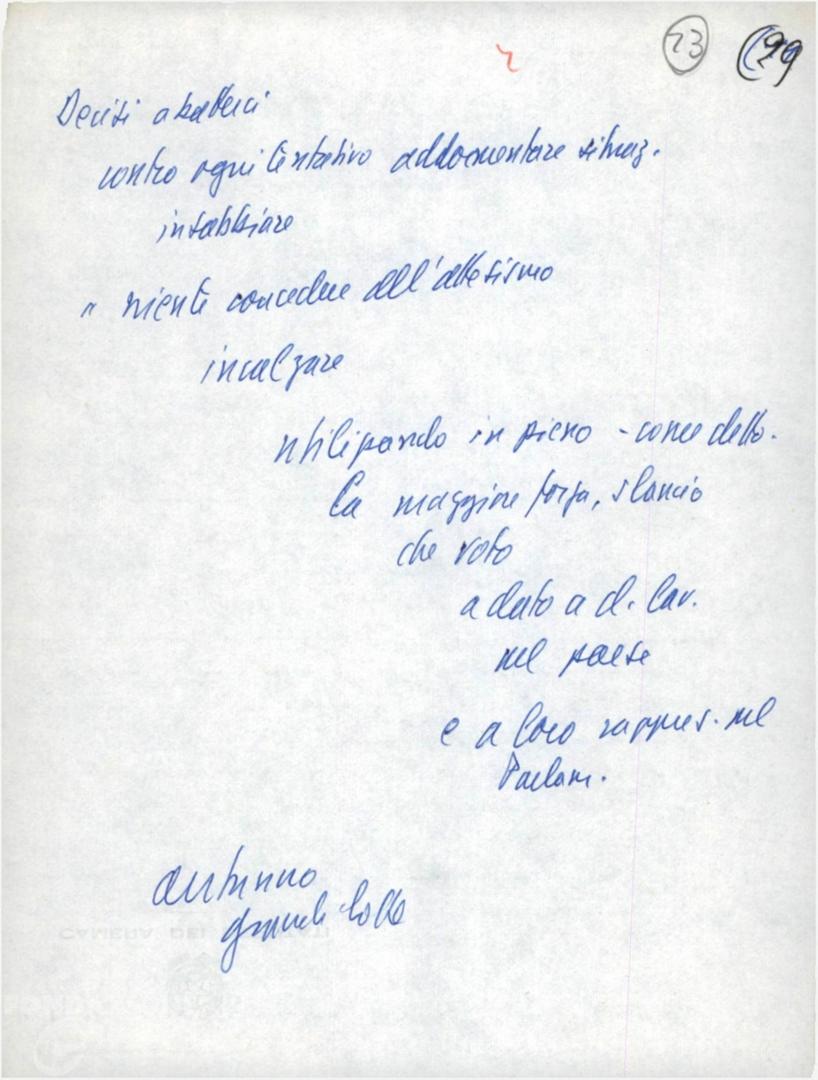 23 29
Decisi a batterci
contro ogni tentativo addormentare situaz.
insabbiare
" niente concedere all'attesismo
incalzare
utilizzando in pieno - come detto.
la maggiore forza, slancio
che voto
a dato a d. Lav.
nel paese
e a loro rappres. nel
Parlam.
autunno
grandi lotte
CAMERA DEI DEPUTATI